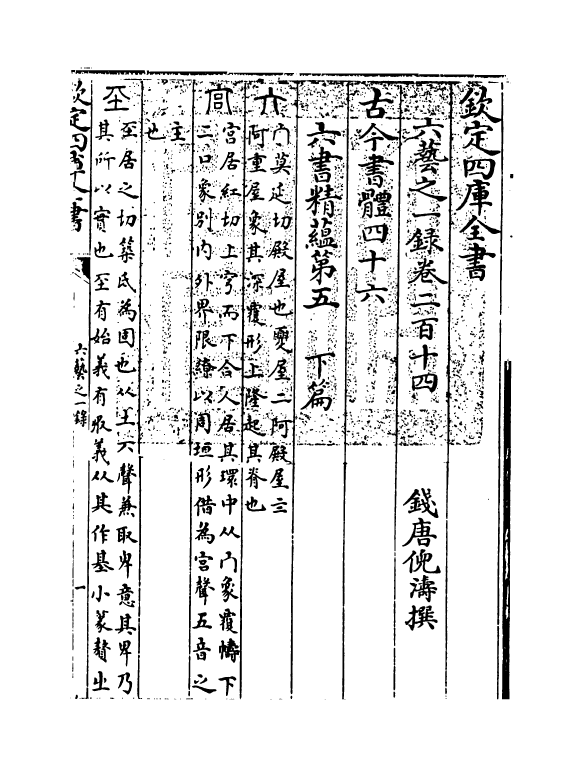 欽定四庫全書
六藝之一録卷二百十四
錢唐倪濤撰
古今書體四十六
六書精藴第五　下篇
宀莫延切殿屋也夏屋二阿殿屋三
阿重屋象其深覆形上隆起其脊也
宮居紅切上穹而下合人居其環中从宀象覆幬下
二口象别内外界限繚以周垣形借為宫聲五音之
主
也
坖居之切築氐為固也从土丌聲兼取卑意其卑乃
其所以實也坖有始義有收義从其作基小篆贅㞢
欽定四庫全書
六藝之一録
一